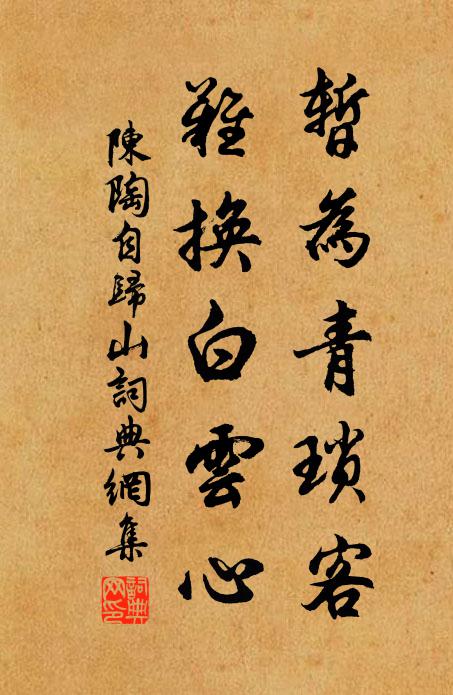 暫為青瑣客
難換白雲心
陳陶自歸山詞典網集
詞典網印